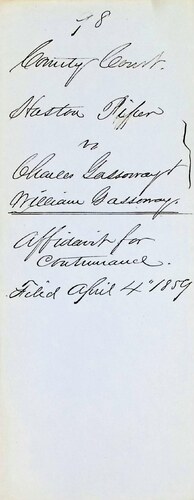 78
County Court.
Haston Fifer
vs
Charles Gassoway &
William Gassoway.
Affidavit for
Continuance.
Filed April 4" 1859